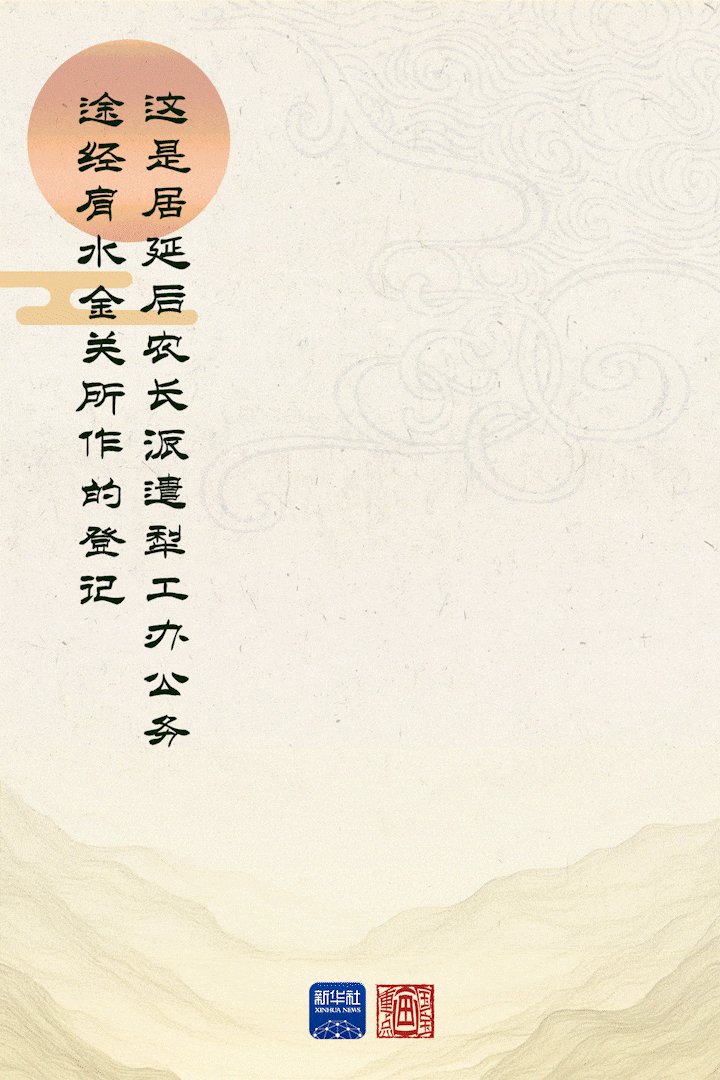 这是居延后农长派遣犁工办公务
途经肩水金关所作的登记
新华社
XINHUA NEWS